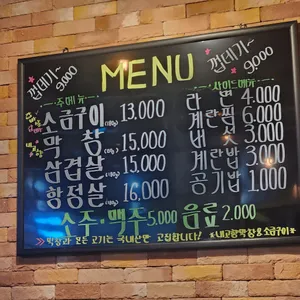 껍데기~ 9.000
MENU
껍데기~ 9.000
~주메뉴~
소금구이 13.000
막창 15.000
삼겹살 15.000
항정살 16.000
~사이드메뉴~
라면 4.000
계란찜 6.000
비국 3.000
계란밥 3.000
공기밥 1.000
소주·맥주 5.000 음료 2.000
막창과 모든 고기는 국내산만 고집합니다!
내고향막창&소금구이